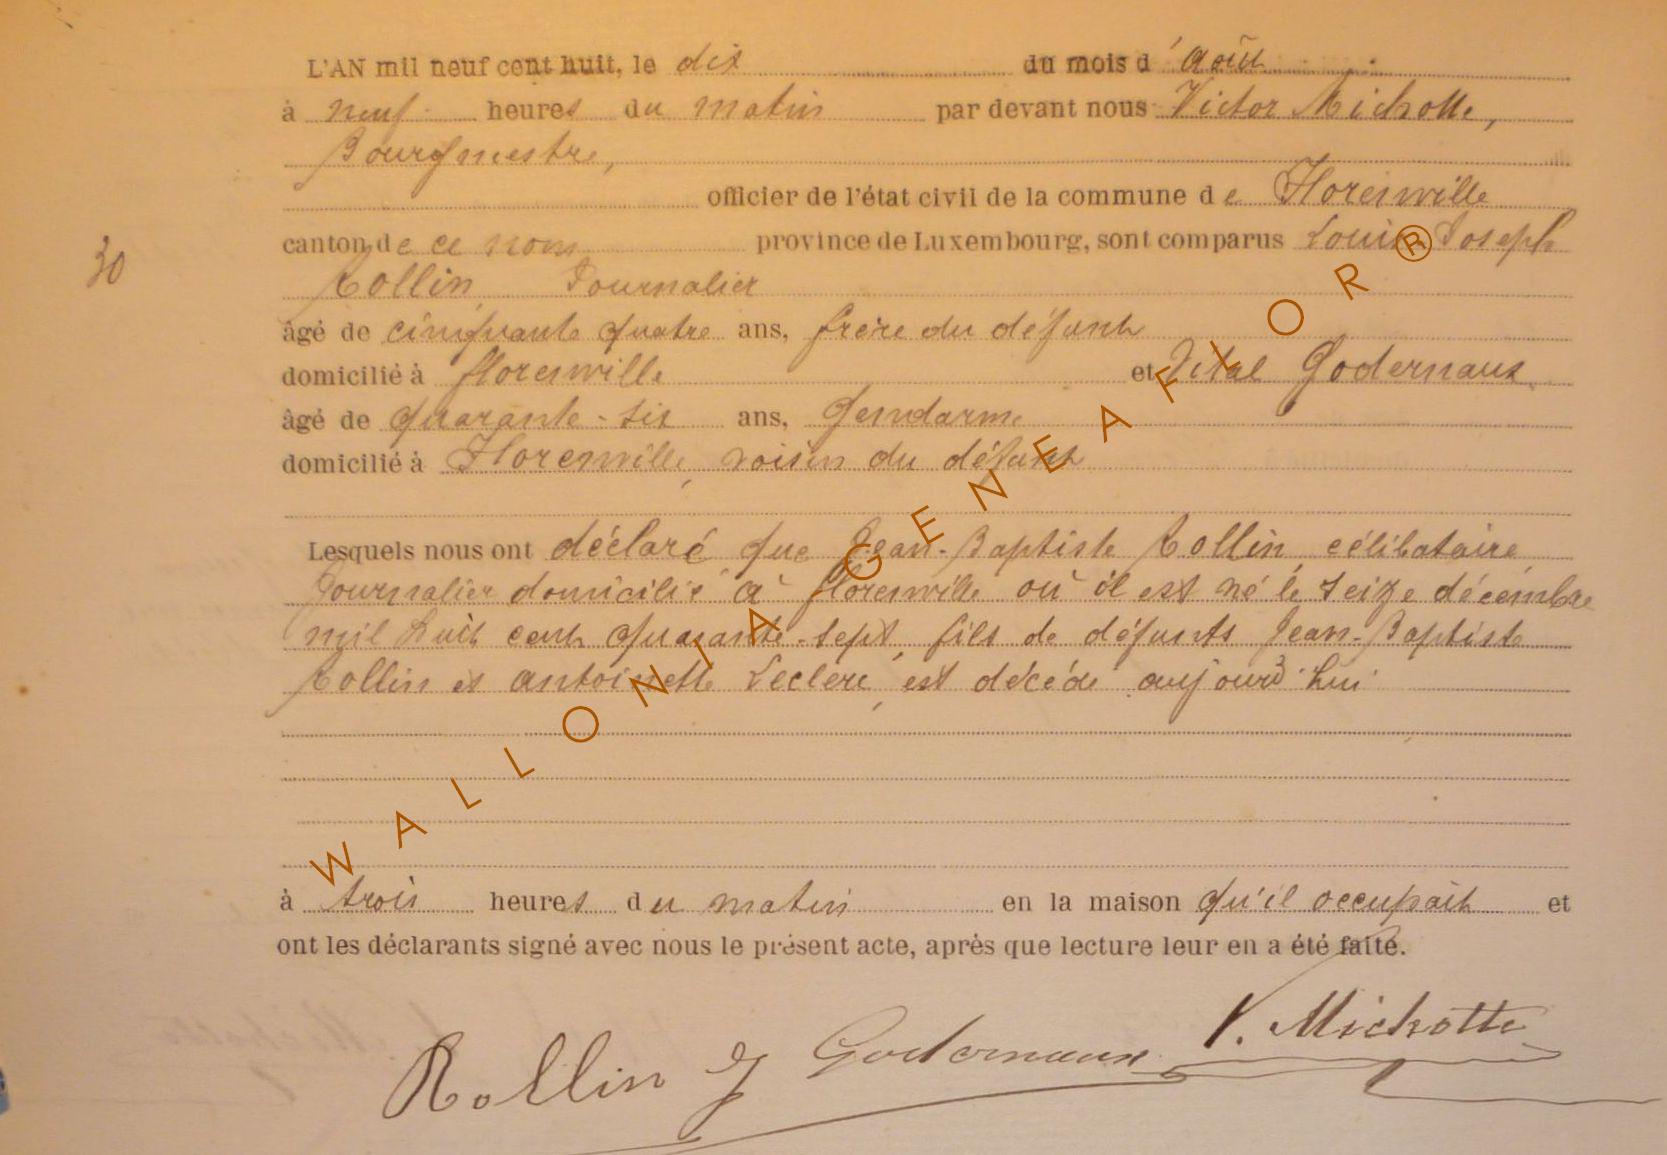 L'AN mil neuf cent huit, le dix du mois d'août
à neuf heures du matin par devant nous Victor Michotte,
Bourgmestre,
officier de l'état civil de la commune de Florenville
canton de ce nom province de Luxembourg, sont comparus Louis Joseph
30
Rollin Journalier
âgé de cinquante quatre ans, frère du défunt
domicilié à florenville et Vital Godernaux
âgé de quarante-six ans, Gendarme
domicilié à Florenville, voisin du défunt
Lesquels nous ont déclaré que Jean-Baptiste Rollin, célibataire,
Journalier domicilié à florenville où il est né le seize décembre
mil huit cent quarante-sept, fils de défunts Jean-Baptiste
Rollin et antoinette Leclerc, est décédé aujourd'hui
à trois heures du matin en la maison qu'il occupait et
ont les déclarants signé avec nous le présent acte, après que lecture leur en a été faite.
Rollin J Godernaux V. Michotte
WALLONIA GENEAFLOR®